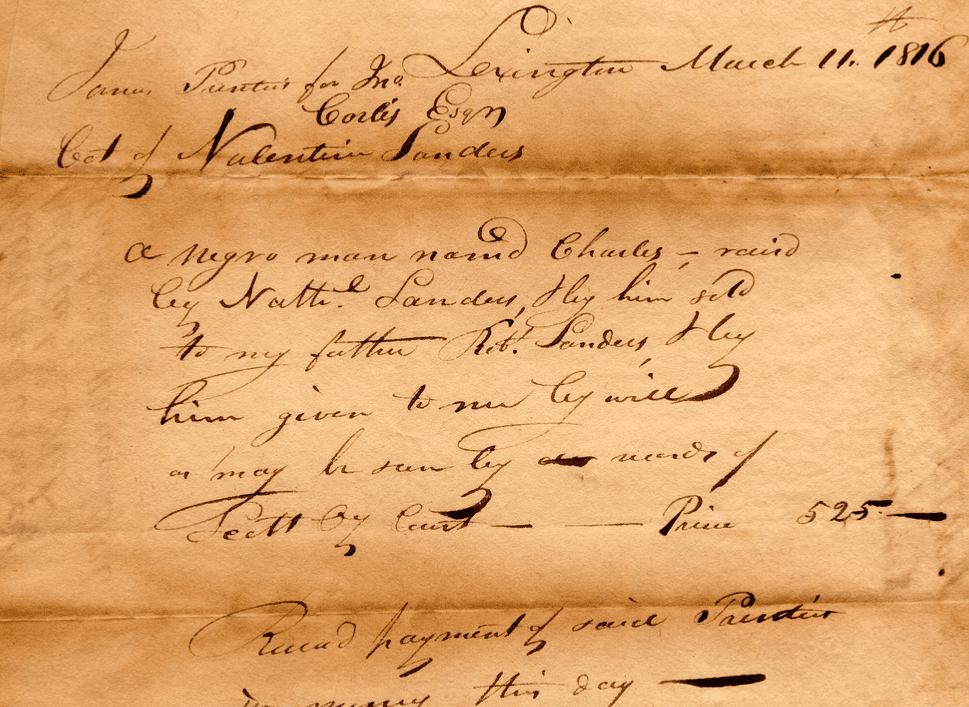 Lexington March 11th 1816
James Prentiss for Jno.
Corlis Esqr
Bot of Valentine Sanders
a negro man namd Charles – raisd
by Nathl. Sanders, & by him sold
to my father Robt. Sanders, & by
him given to me by will
as may be seen by records of
Scott Cy Court — — Price 525 —
Recevd payment of said Prentiss
in money this day —